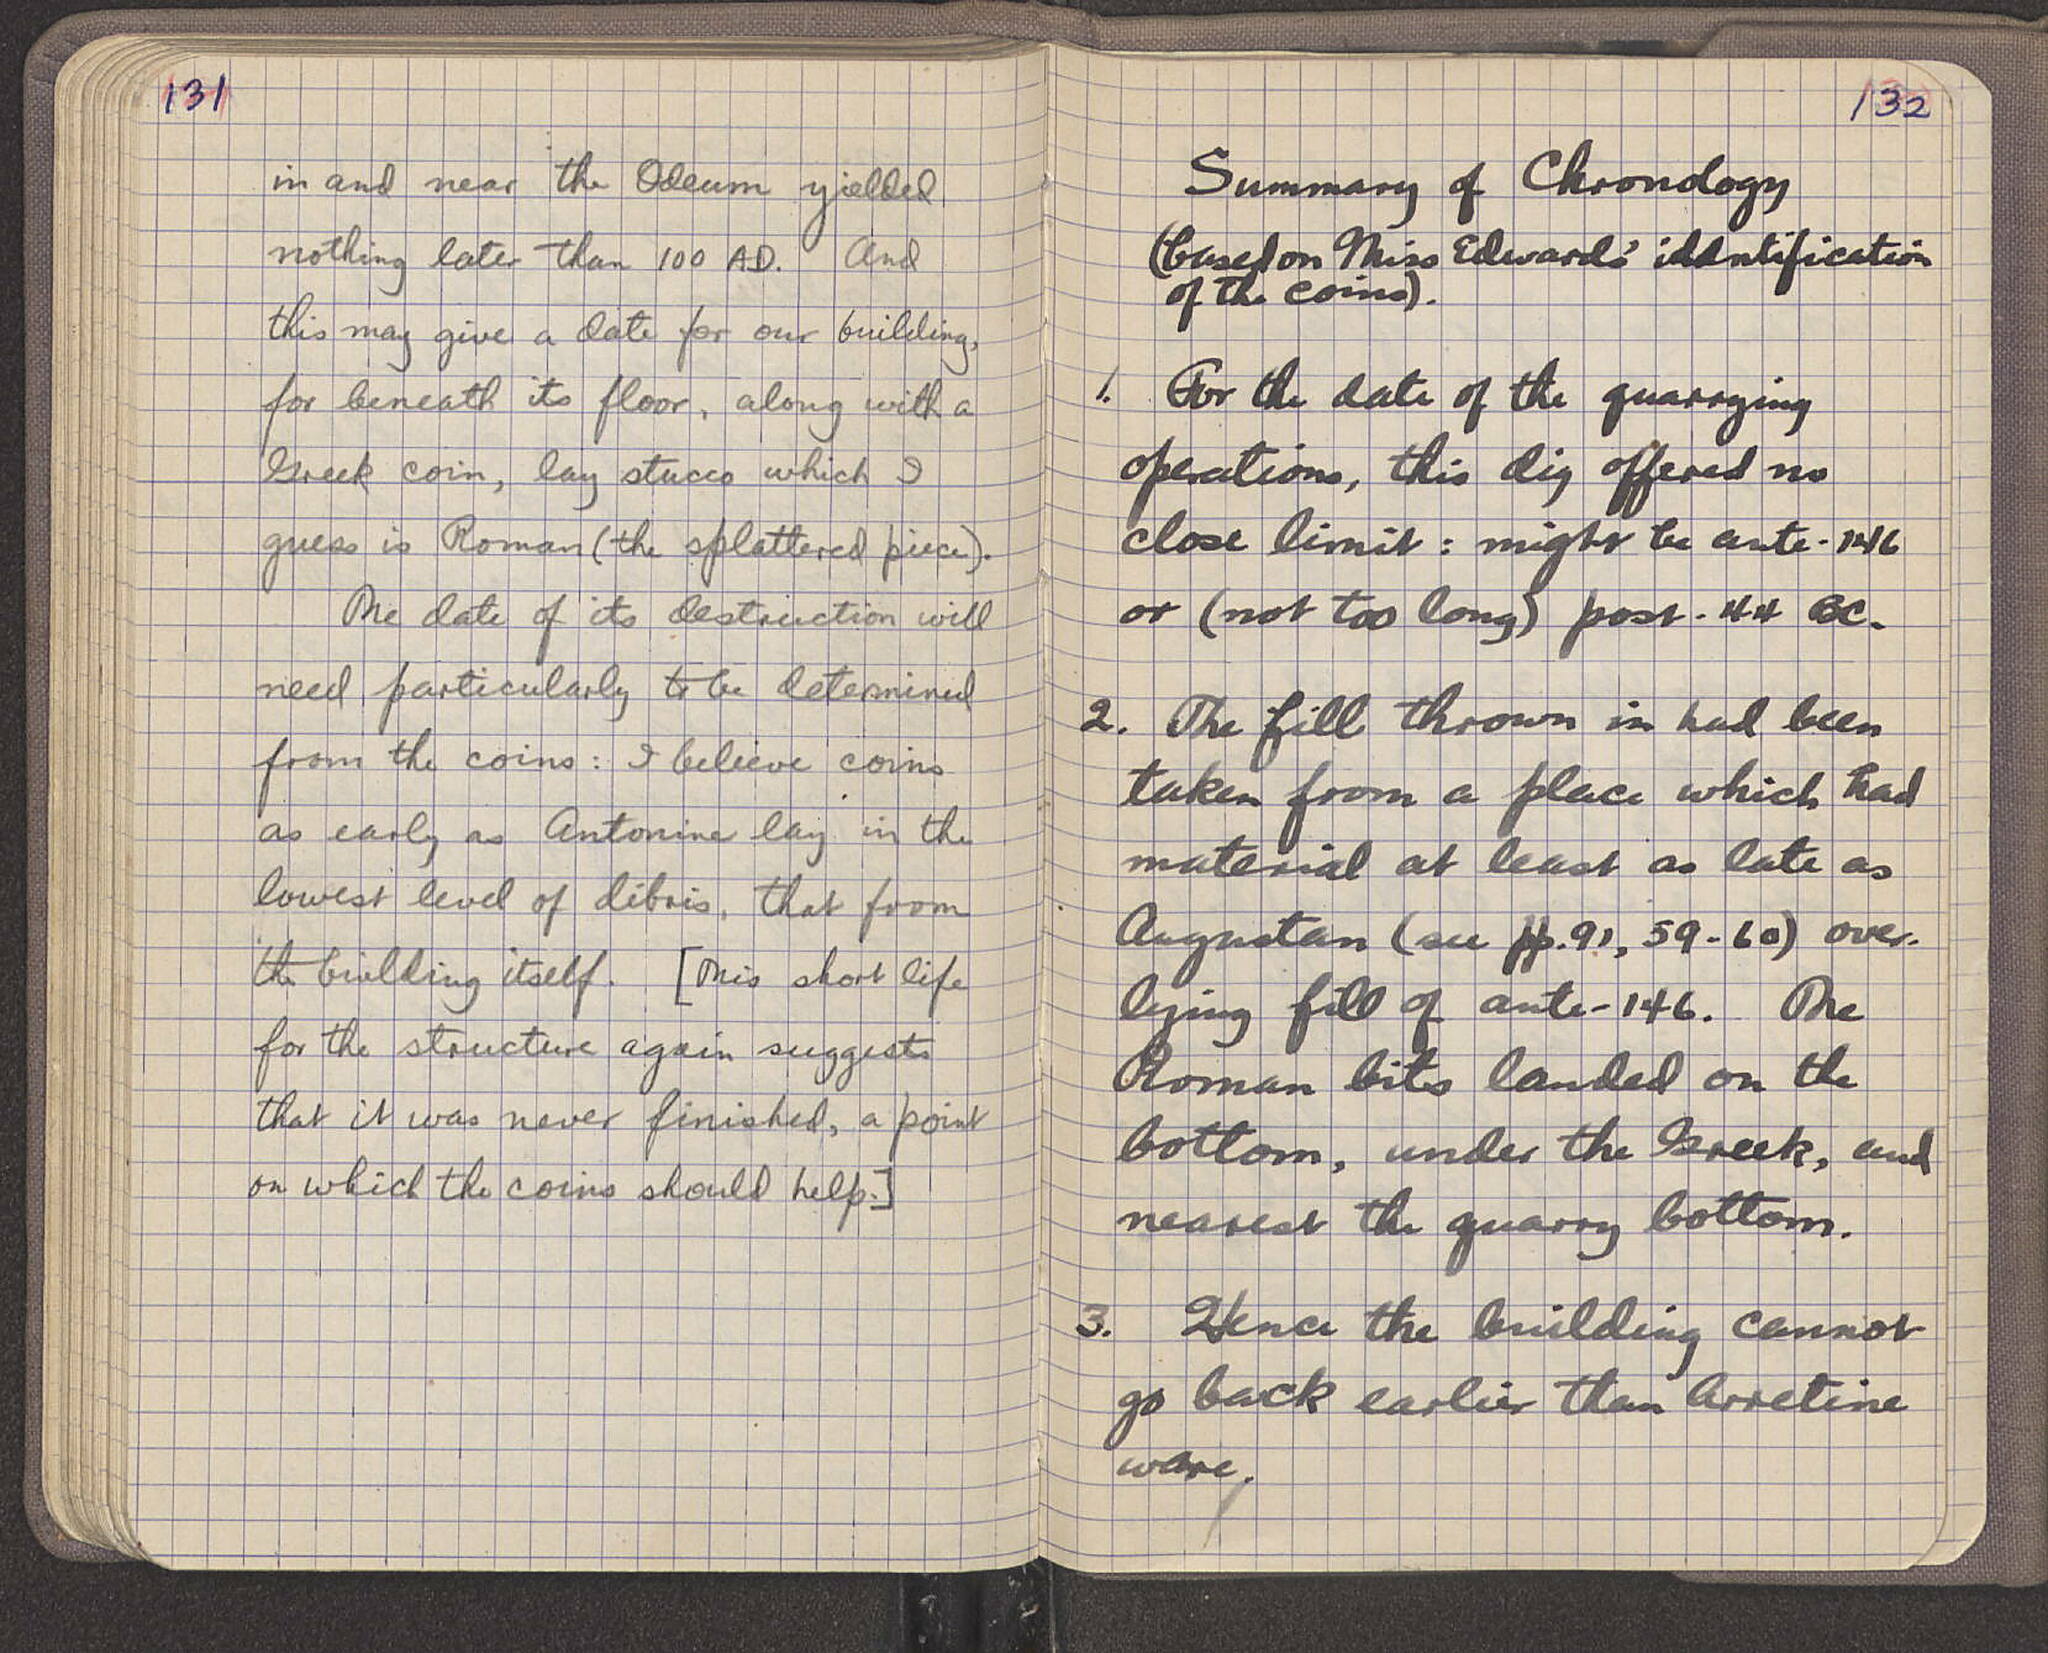 131
in and near the Odeum yielded
nothing later than 100 A.D. And
this may give a date for our building,
for beneath its floor, along with a
Greek coin, lay stucco which I
guess is Roman (the splattered piece).
The date of its destruction will
need particularly to be determined
from the coins: I believe coins
as early as Antonine lay in the
lowest level of débris, that from
the building itself. [This short life
for the structure again suggests
that it was never finished, a point
on which the coins should help.]
132
Summary of Chronology
(based on Miss Edwards' identification
of the coins).
1. For the date of the quarrying
operations, this dig offered no
close limit: might be ante-146
or (not too long) post-44 BC.
2. The fill thrown in had been
taken from a place which had
material at least as late as
Augustan (see pp. 91, 59-60) over-
lying fill of ante-146. The
Roman bits landed on the
bottom, under the Greek, and
nearest the quarry bottom.
3. Hence the building cannot
go back earlier than Arretine
ware.